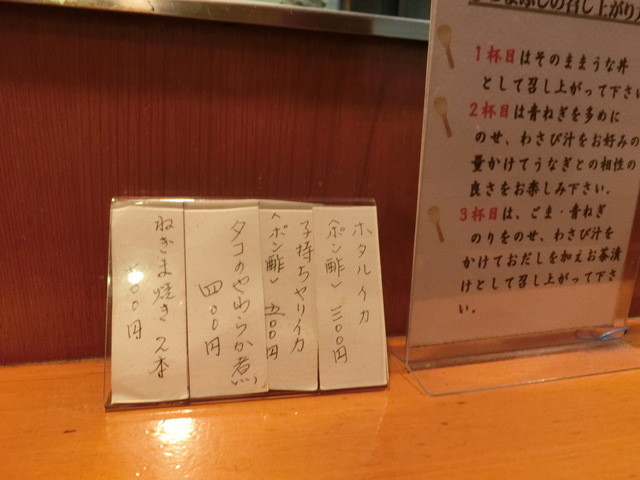 まぶしの召し上がり方
1杯目はそのままうな丼
として召し上がって下さい
2杯目は青ねぎを多めに
のせ、わさび汁をお好みの
量かけてうなぎとの相性の
良さをお楽しみ下さい。
3杯目は、ごま・青ねぎ
のりをのせ、わさび汁を
かけておだしを加えお茶漬
けとして召し上がって下さ
い。
ホタルイカ
（ポン酢） 三〇〇円
子持ちヤリイカ
（ポン酢） 五〇〇円
タコのやわらか煮
四〇〇円
ねぎま焼き 2本
〇〇円